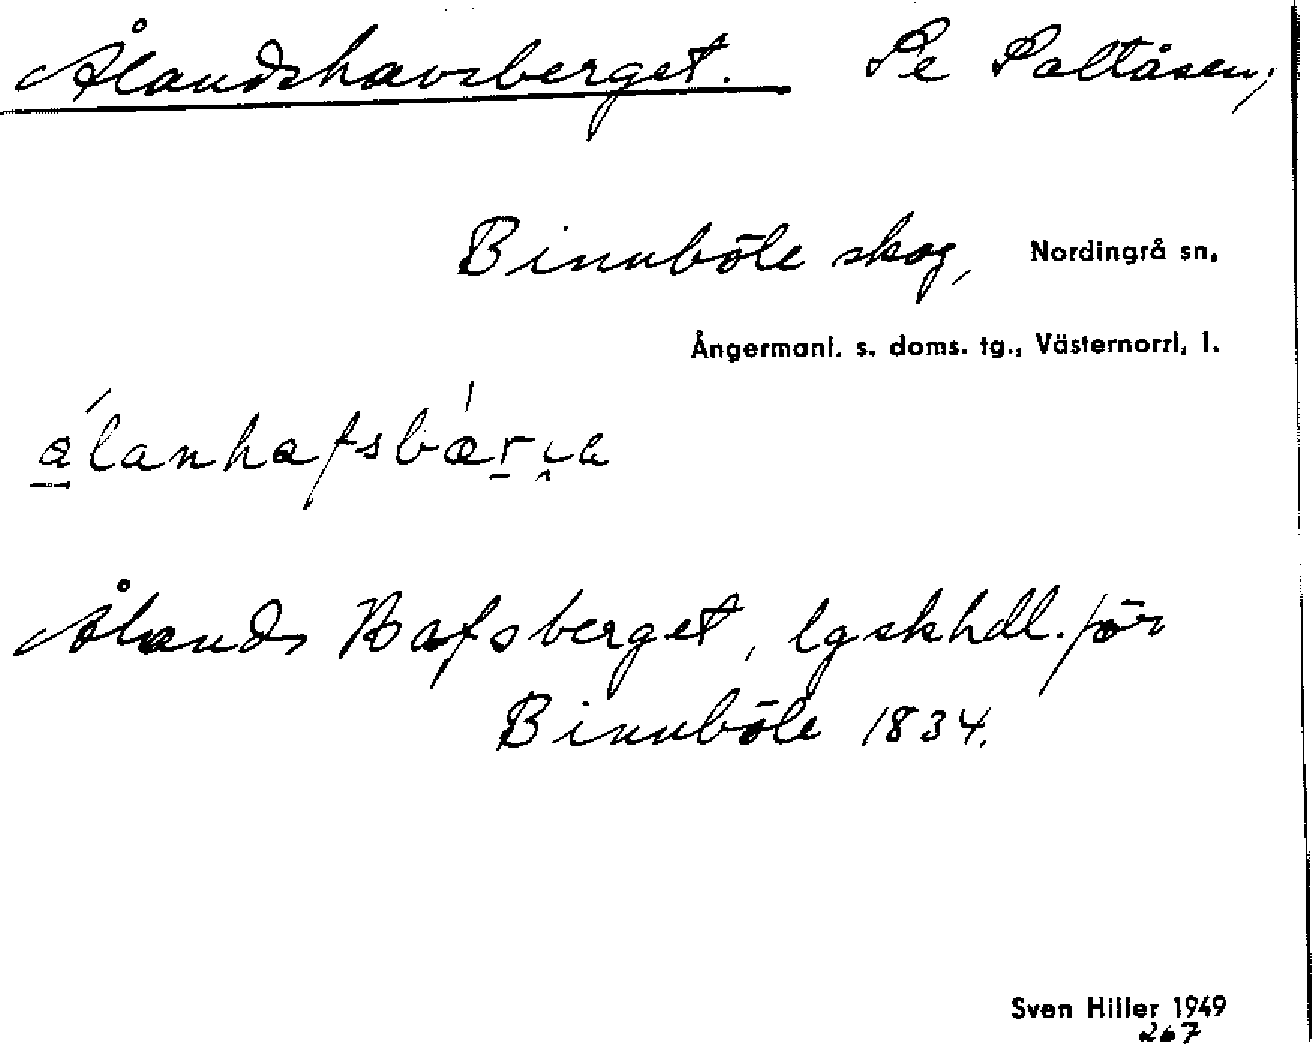 Ålandshavsberget. Se Saltåsen,
Binnböle skog, Nordingrå sn.
Ångermanl. s. doms. tg., Västernorrl. l.
Ålands Hafsberget, lgskhdl. för
Binnböle 1834.
Sven Hiller 1949
267